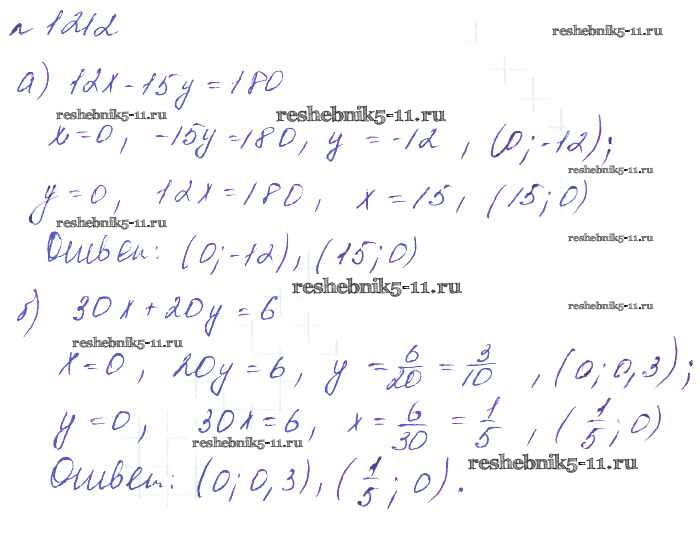 № 1212
reshebnik5-11.ru
а) 12x - 15y = 180
reshebnik5-11.ru reshebnik5-11.ru
x = 0, -15y = 180, y = -12, (0; -12);
reshebnik5-11.ru
y = 0, 12x = 180, x = 15, (15; 0)
reshebnik5-11.ru
reshebnik5-11.ru
Ответ: (0; -12), (15; 0)
reshebnik5-11.ru
б) 30x + 20y = 6
reshebnik5-11.ru
reshebnik5-11.ru
x = 0, 20y = 6, y = 6/20 = 3/10, (0; 0,3);
y = 0, 30x = 6, x = 6/30 = 1/5, (1/5; 0)
reshebnik5-11.ru
reshebnik5-11.ru
Ответ: (0; 0,3), (1/5; 0).